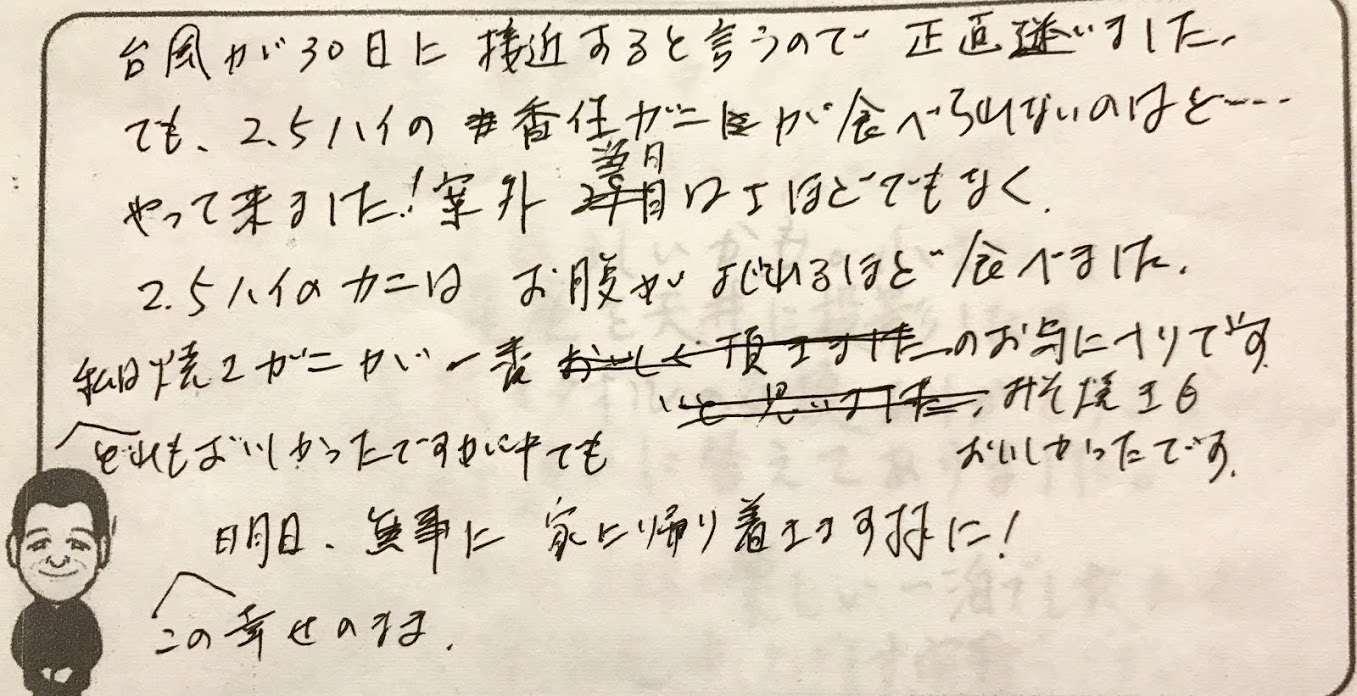 台風が30日に接近すると言うので正直迷いました。
でも、2.5ハイの香住ガニが食べられないのはと····
やって来ました！案外 翌日はさほどでもなく、
2.5ハイのカニはお腹がよじれるほど食べました。
私は焼きガニが一番 おいしく頂きましたのお気に入りです
いと思いました。みそ焼きも
どれもおいしかったですが中でも おいしかったです。
明日、無事に家に帰り着きます様に！
この幸せのまま。